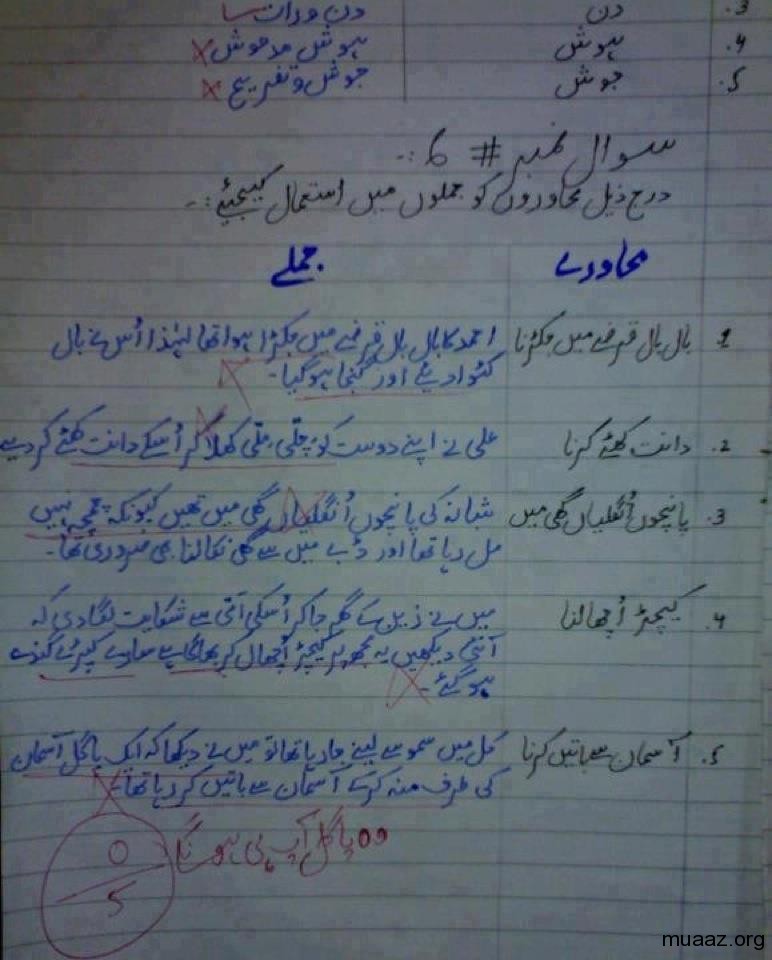 3. دن دن و رات
4. ہوش ہوش مدہوش
5. جوش جوش و تفریح
سوال نمبر # 6 :-
درج ذیل محاوروں کو جملوں میں استعمال کیجیئے :-
محاورے جملے
1. بال بال قرضے میں جکڑنا احمد کا بال بال قرضے میں جکڑا ہوا تھا لہٰذا اُس نے بال
کٹوا دیئے اور گنجا ہوگیا۔
2. دانت کھٹے کرنا علی نے اپنے دوست کو کھلا کر اُسکے دانت کھٹے کر دیے
3. پانچوں اُنگلیاں گھی میں شبانہ کی پانچوں اُنگلیاں گھی میں تھیں کیونکہ چمچہ نہیں
مل رہا تھا اور ڈبے میں سے گھی نکالنا بھی ضروری تھا۔
4. کیچڑ اُچھالنا میں نے ذین کے گھر جا کر اُسکی اَمّی سے شکایت لگا دی کہ
آنٹی دیکھیں یہ مجھ پر کیچڑ اُچھال کر بھاگا ہے سارے کپڑے گندے
ہو گئے۔
5. آسمان سے باتیں کرنا کل میں سموسے لینے جا رہا تھا تو میں نے دیکھا کہ ایک پاگل آسمان
کی طرف منہ کرکے آسمان سے باتیں کر رہا تھا۔
وہ پاگل آپ ہی ہو نگا
0
5
muaaz.org